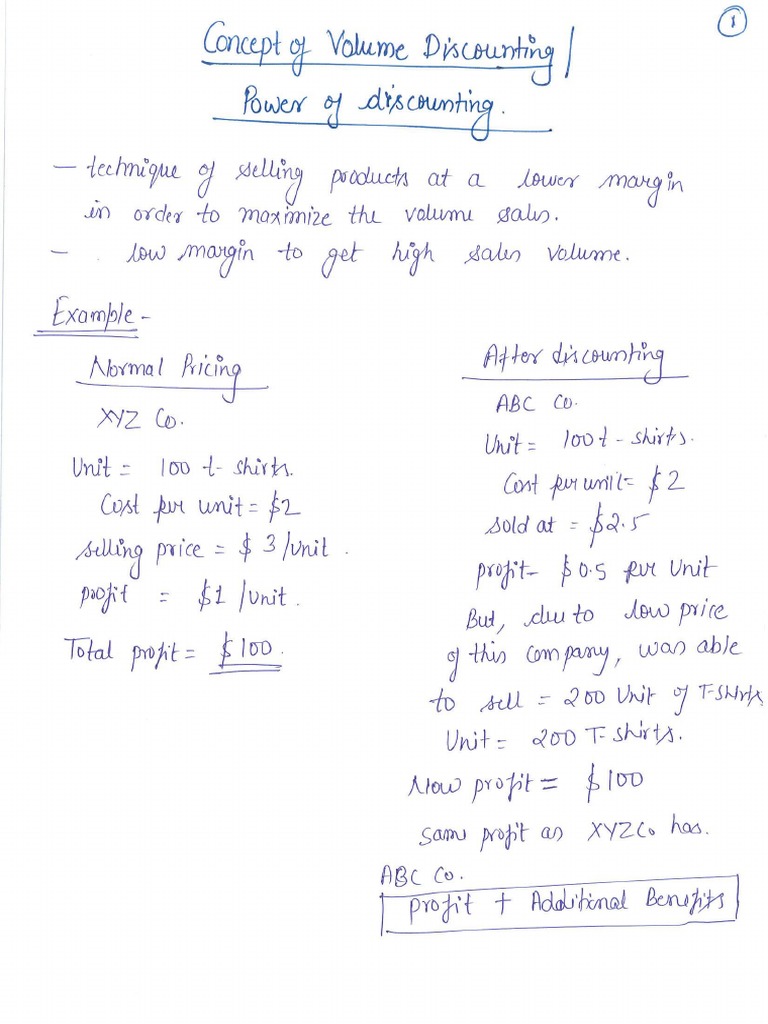 1
Concept of Volume Discounting /
Power of discounting.
– technique of selling products at a lower margin
in order to maximize the volume sales.
– . low margin to get high sales volume.
Example -
Normal Pricing
XYZ Co.
Unit = 100 t- shirts.
Cost per unit = $2
selling price = $3/unit.
profit = $1/unit.
Total profit = $100.
After discounting
ABC Co.
Unit = 100 t- shirts.
Cost per unit = $2
sold at = $2.5
profit - $0.5 per Unit
But, due to low price
of this company, was able
to sell = 200 Unit of T-shirts
Unit = 200 T- shirts.
Now profit = $100
same profit as XYZ Co has.
ABC Co.
Profit + Additional Benefits